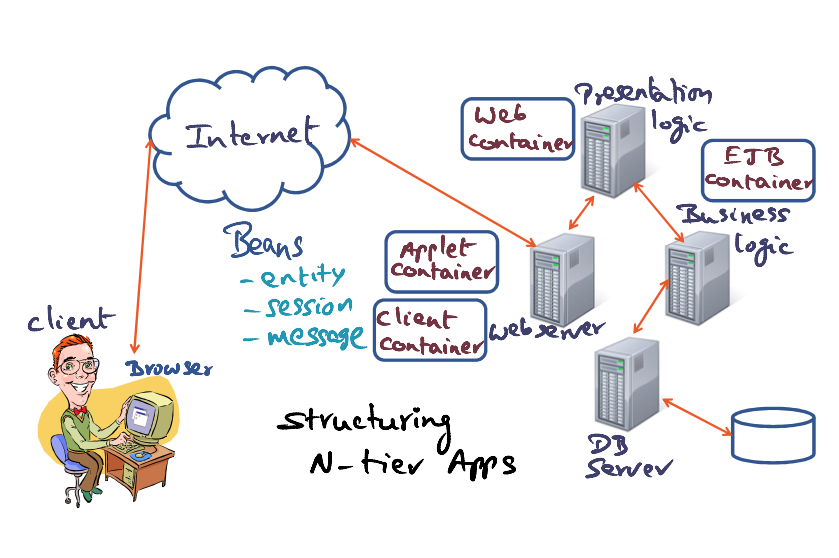 Internet
Web
container
Presentation
logic
EJB
container
Business
logic
Beans
- entity
- session
- message
Applet
Container
Client
Container
Webserver
client
Browser
DB
Server
Structuring
N-tier Apps